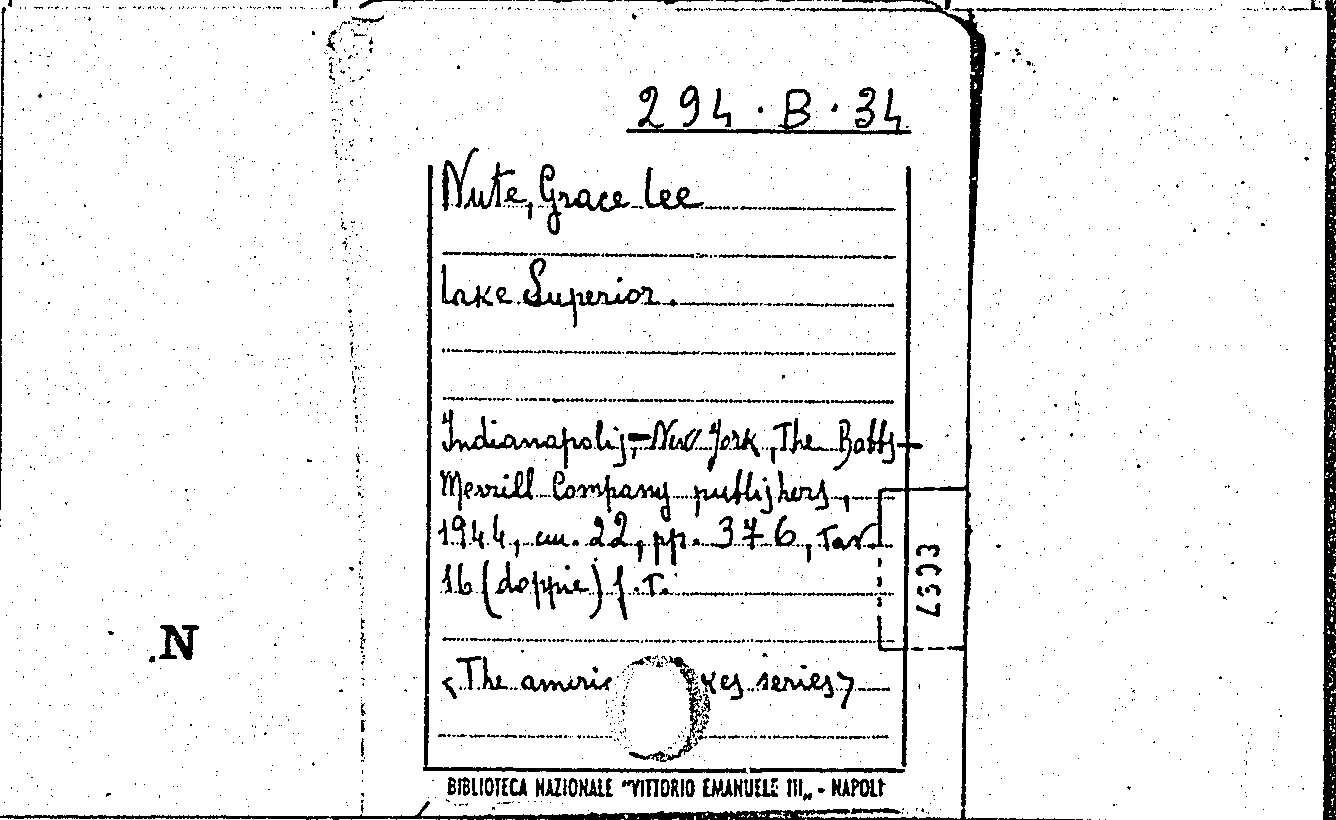 294.B.34
Nute, Grace Lee
Lake Superior.
Indianapolis,-New York, The Bobbs-
Merrill Company publishers,
1944, cm. 22, pp. 376, tav.
16 (doppie) f.t.
<The americ kes series>
N
BIBLIOTECA NAZIONALE "VITTORIO EMANUELE III„ - NAPOLI